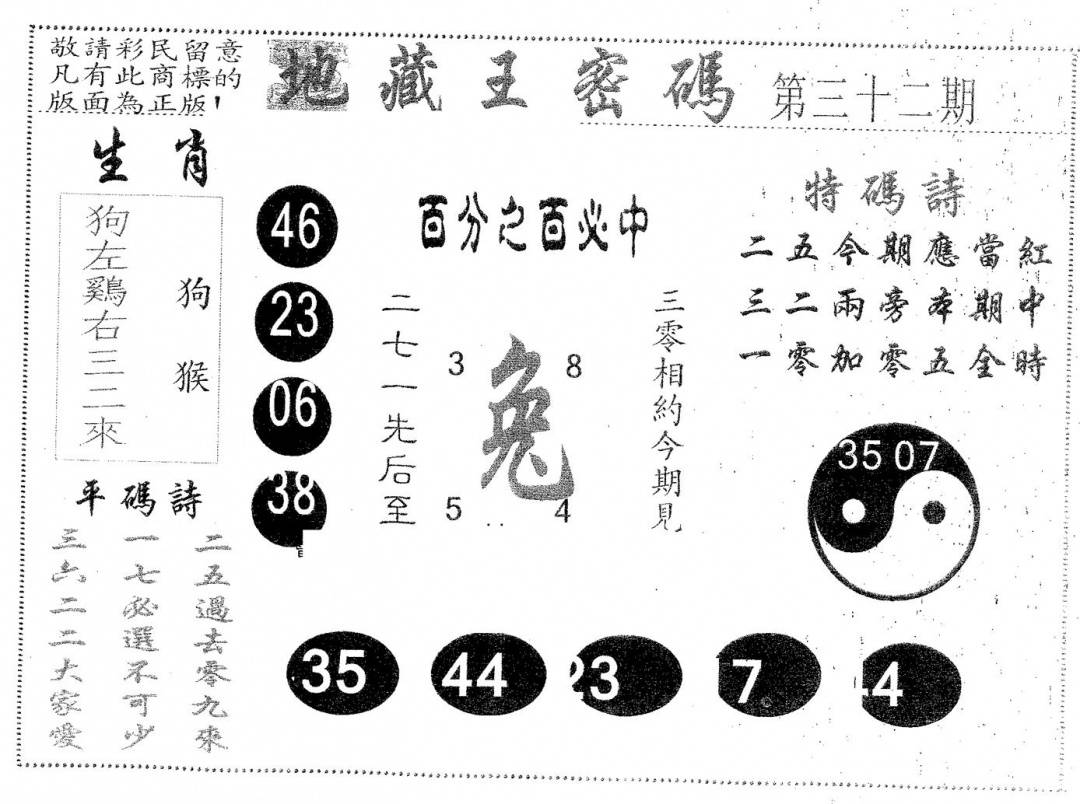 敬請彩民留意
凡有此商標的
版面為正版!
地藏王密碼
第三十二期
生肖
狗左鷄右三二來
狗猴
平碼詩
二五過去零九來
一七必選不可少
三六二二大家愛
46
23
06
38
百分之百必中
二七一先后至
3
8
兔
5
4
三零相約今期見
特碼詩
二五今期應當紅
三二兩旁本期中
一零加零五全時
35 07
35
44
23
7
4